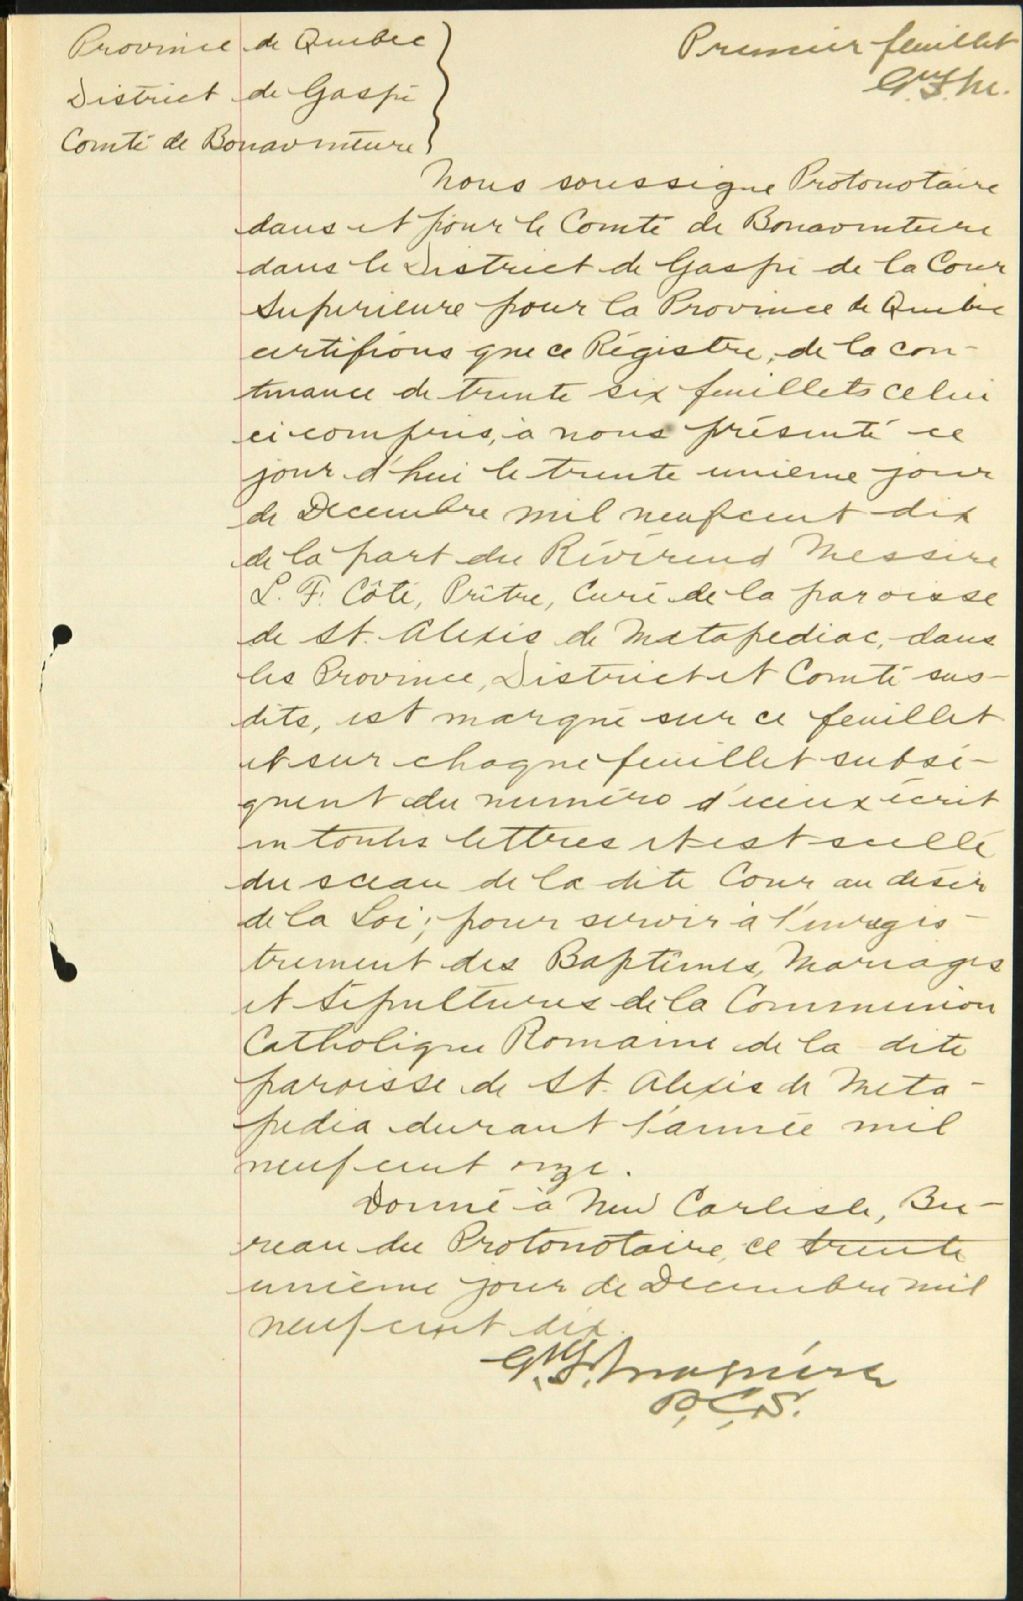 Province de Quebec
District de Gaspé
Comté de Bonaventure
Premier feuillet
Nous soussigne Protonotaire
dans et pour le Comté de Bonaventure
dans le District de Gaspé de la Cour
Superieure pour la Province de Quebec
certifions que ce Régistre, de la con-
tenance de trente six feuillets celui
ci compris, à nous présenté ce
jour d'hui le trente unième jour
de Decembre mil neuf cent dix
de la part du Révérend Messire
L. F. Côté, Prêtre, Curé de la paroisse
de St. Alexis de Matapediac, dans
les Province, District et Comté sus-
dits, est marqué sur ce feuillet
et sur chaque feuillet subsé-
quent du numéro d'iceux écrit
en toutes lettres et est scellé
du sceau de la dite Cour au désir
de la Loi; pour servir à l'enregis-
trement des Baptêmes, Mariages
et Sépultures de la Communion
Catholique Romaine de la dite
paroisse de St. Alexis de Meta-
pedia durant l'année mil
neuf cent onze.
Donné à New Carlisle, Bu-
reau du Protonotaire, ce trente
unième jour de Decembre mil
neuf cent dix.
P.C.S.